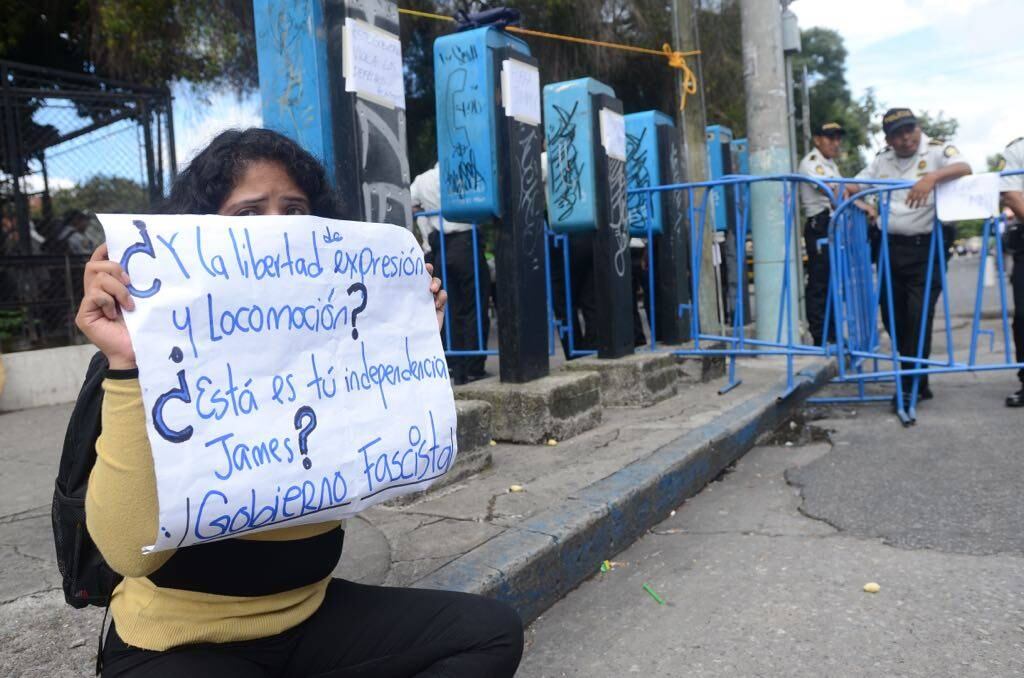 ¿Y la libertad de expresión
y Locomoción?
¿Está es tú independencia
James?
¡Gobierno Fascista!